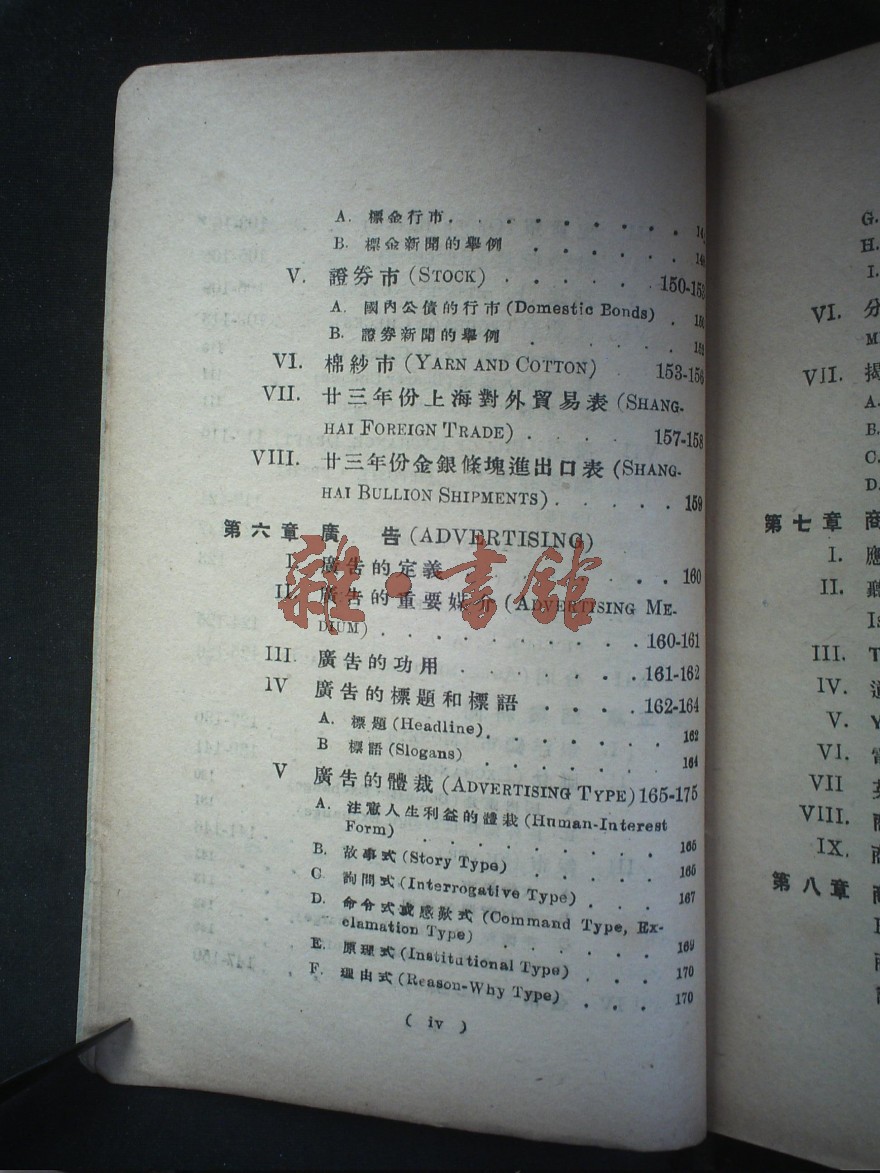 A. 標金行市 . . . . . . . . .
B. 標金新聞的舉例 . . . . . .
V. 證券市 (STOCK) . . . . . 150-153
A. 國內公債的行市 (Domestic Bonds) .
B. 證券新聞的舉例 . . . . . .
VI. 棉紗市 (YARN AND COTTON) 153-156
VII. 廿三年份上海對外貿易表 (SHANG-
HAI FOREIGN TRADE) . . . . 157-158
VIII. 廿三年份金銀條塊進出口表 (SHANG-
HAI BULLION SHIPMENTS) . . . . . 159
第六章 廣告 (ADVERTISING)
I. 廣告的定義 . . . . 160
II. 廣告的重要媒介 (ADVERTISING ME-
DIUM) . . . . . . . . 160-161
III. 廣告的功用 . . . . . . 161-162
IV 廣告的標題和標語 . . . . 162-164
A. 標題 (Headline) . . . . . . . 162
B 標語 (Slogans) . . . . . . . 164
V 廣告的體裁 (ADVERTISING TYPE) 165-175
A. 注意人生利益的體裁 (Human-Interest
Form) . . . . . . . . 165
B. 故事式 (Story Type) . . . . . . 165
C 詢問式 (Interrogative Type) . . . . 167
D. 命令式或感歎式 (Command Type, Ex-
clamation Type) . . . . . . 169
E. 原理式 (Institutional Type) . . . . 170
F. 理由式 (Reason-Why Type) . . . . 170
( iv )
雜·書館
G.
H.
I.
VI. 分
VII. 揭
A.
B.
C.
D.
第七章 商
I. 應
II. 聽
Is
III. T
IV.
V. Y
VI.
VII
VIII. 商
IX. 商
第八章 商